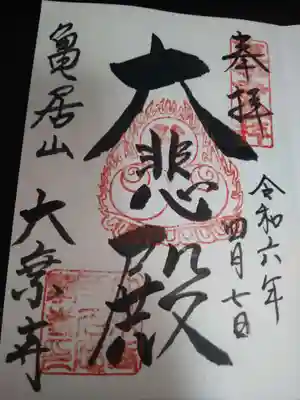 奉拝
令和六年
四月七日
大悲殿
亀居山
大楽寺